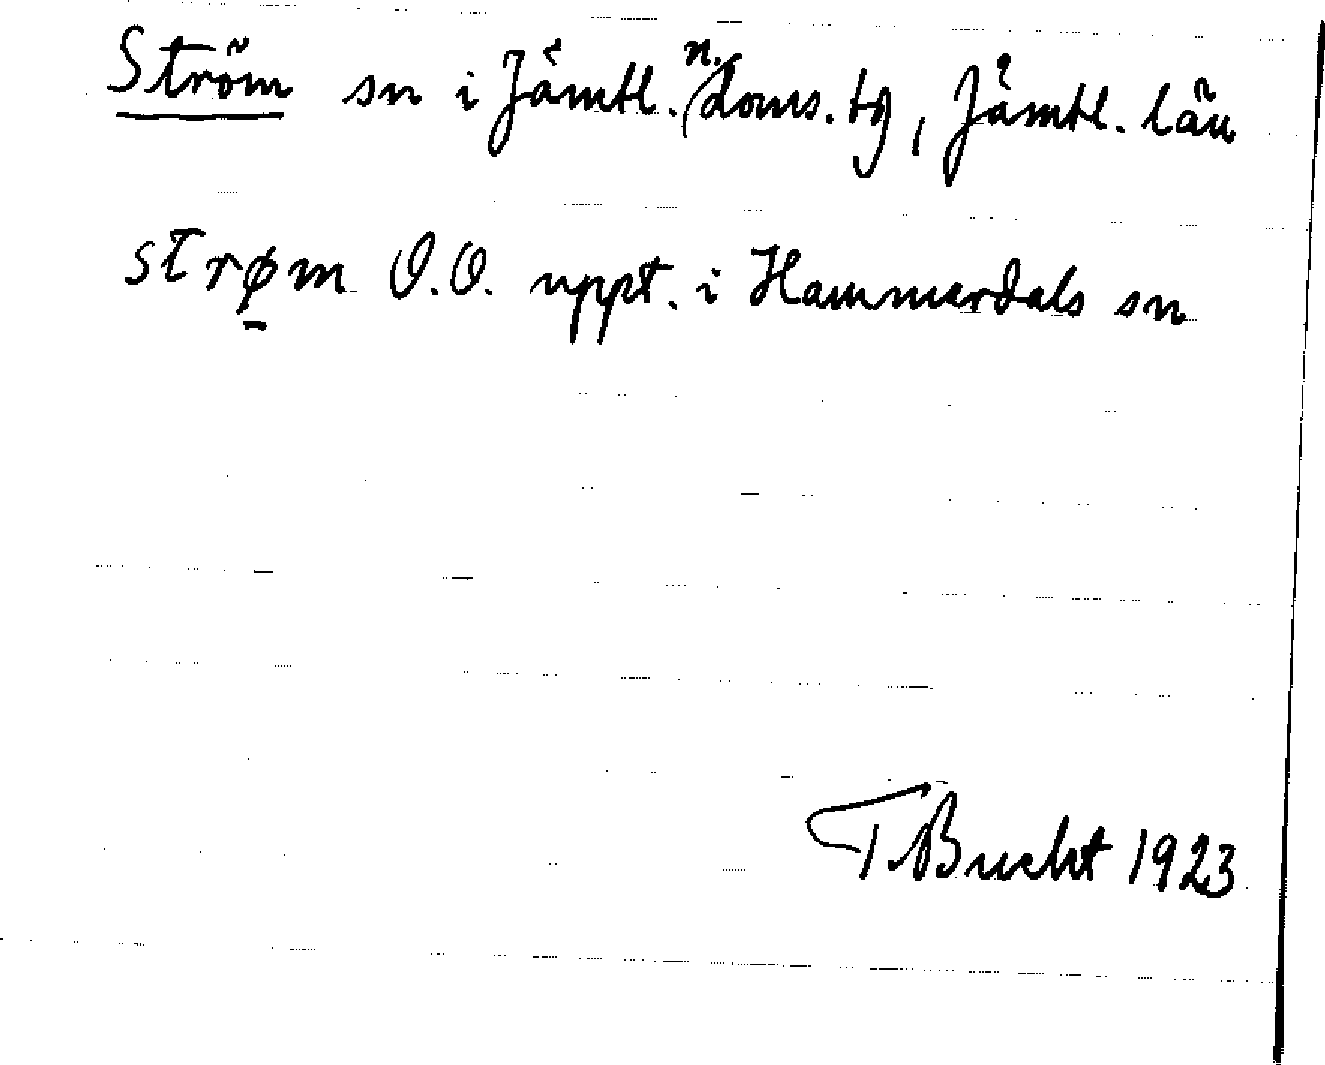 Ström sn i Jämtl. n. doms. tg, Jämtl. län
strø̱m O.O. uppt. i Hammerdals sn
T. Bucht 1923